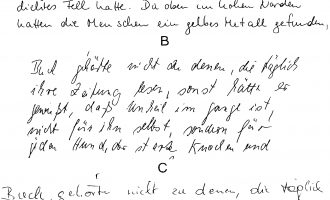 dichtes Fell hatte. Da oben im hohen Norden
hatten die Menschen ein gelbes Metall gefunden,
B
Buck gehörte nicht zu denen, die täglich
ihre Zeitung lesen, sonst hätte er
gewußt, daß Unheil im gange ist,
nicht für ihn selbst, sondern für
jeden Hund, der starke Knochen und
C
Buck gehörte nicht zu denen, die täglich